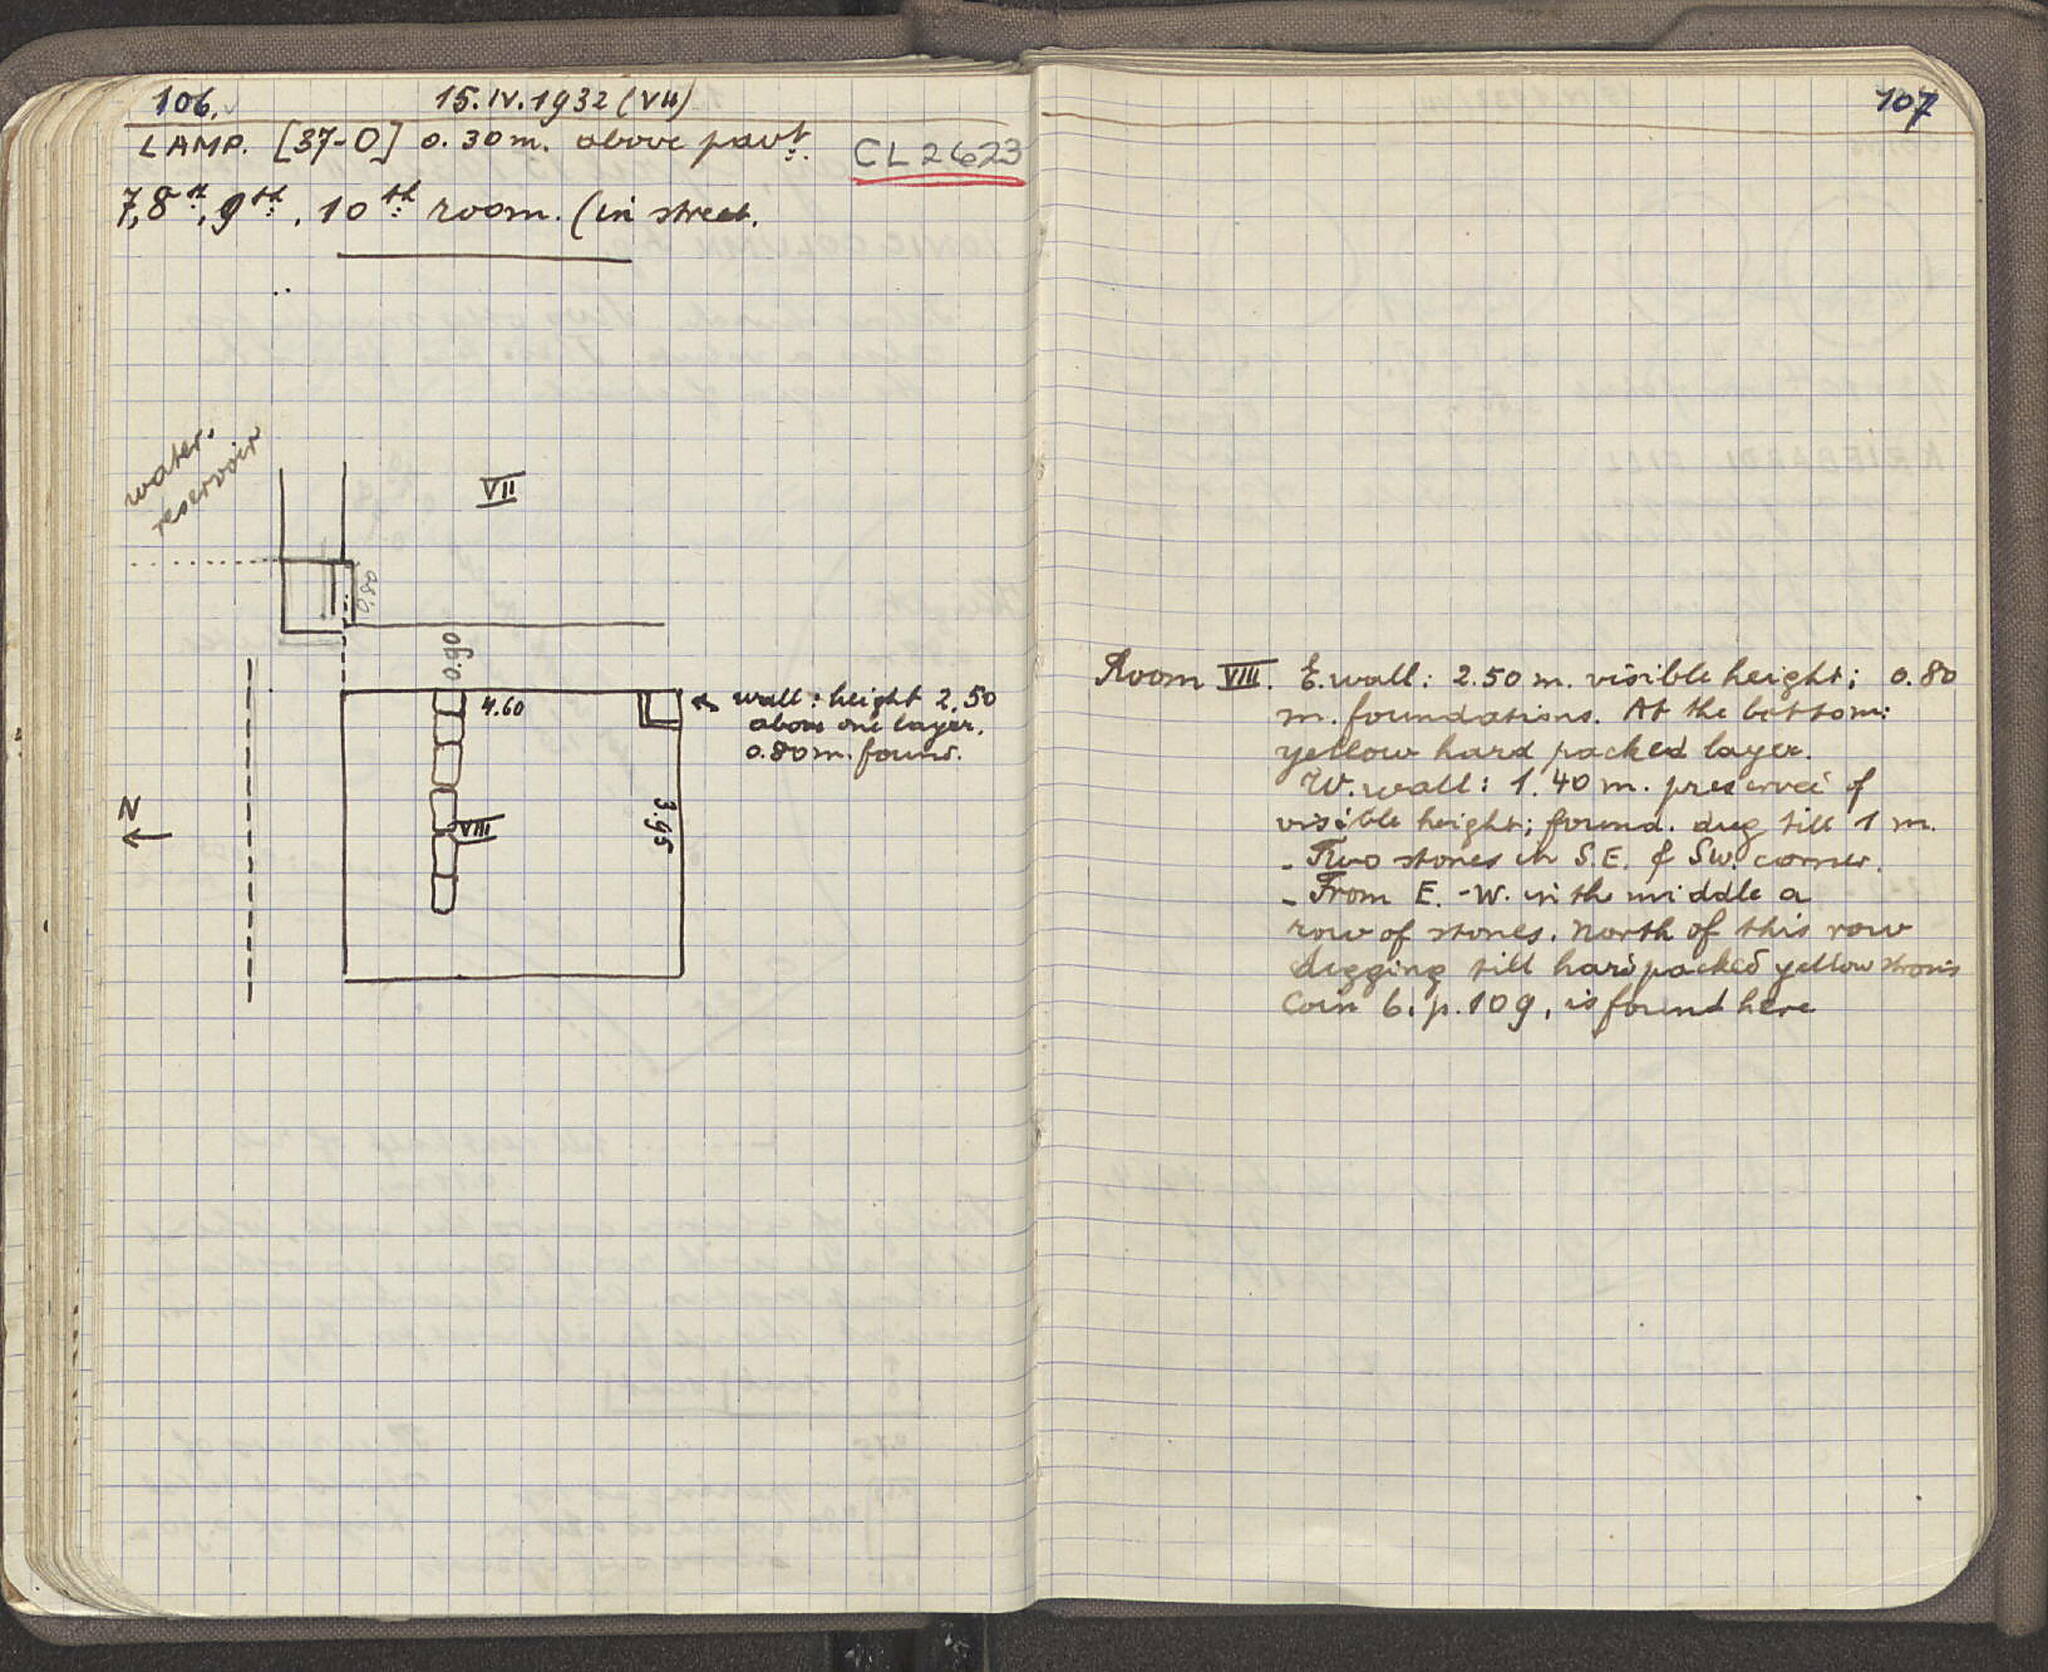 106.
15.IV.1932 (VII)
LAMP. [37-O] 0.30m. above pavt.
CL2623
7, 8th, 9th, 10th room. (in street.
water
reservoir
VII
0.80
0.90
4.60
wall: height 2.50
above one layer.
0.80m. found.
N
VIII
3.95
107
Room VIII. E. wall: 2.50 m. visible height; 0.80
m. foundations. At the bottom:
yellow hard packed layer.
W. wall: 1.40 m. preserved of
visible height; found. dug till 1 m.
- Two stones in S.E. & SW. corner.
- From E. - W. in the middle a
row of stones. North of this row
digging till hard packed yellow
Coin 6. p. 109, is found here